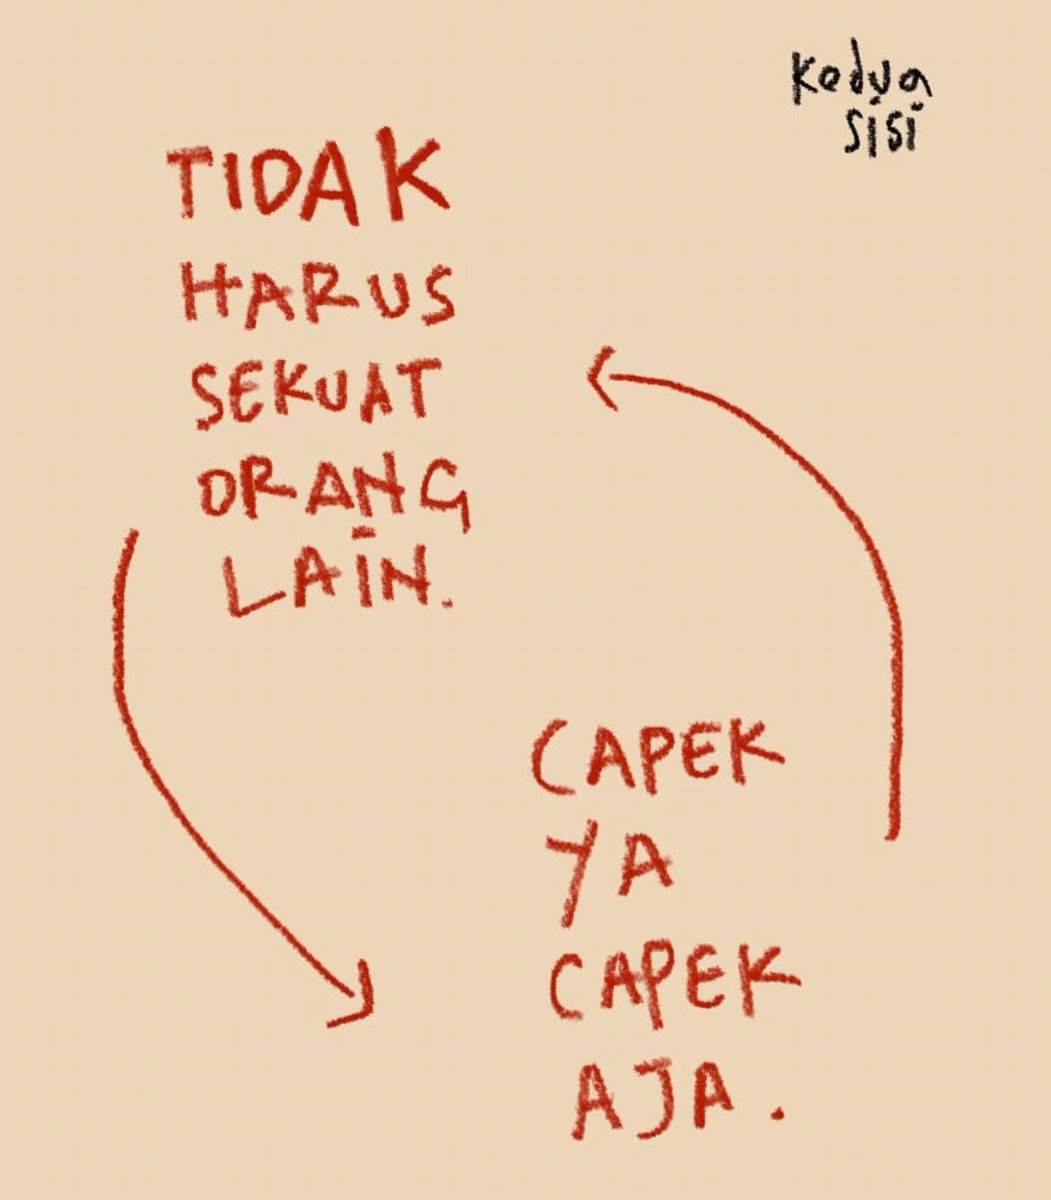 Kedua
sisi
TIDAK
HARUS
SEKUAT
ORANG
LAIN.
CAPEK
YA
CAPEK
AJA.